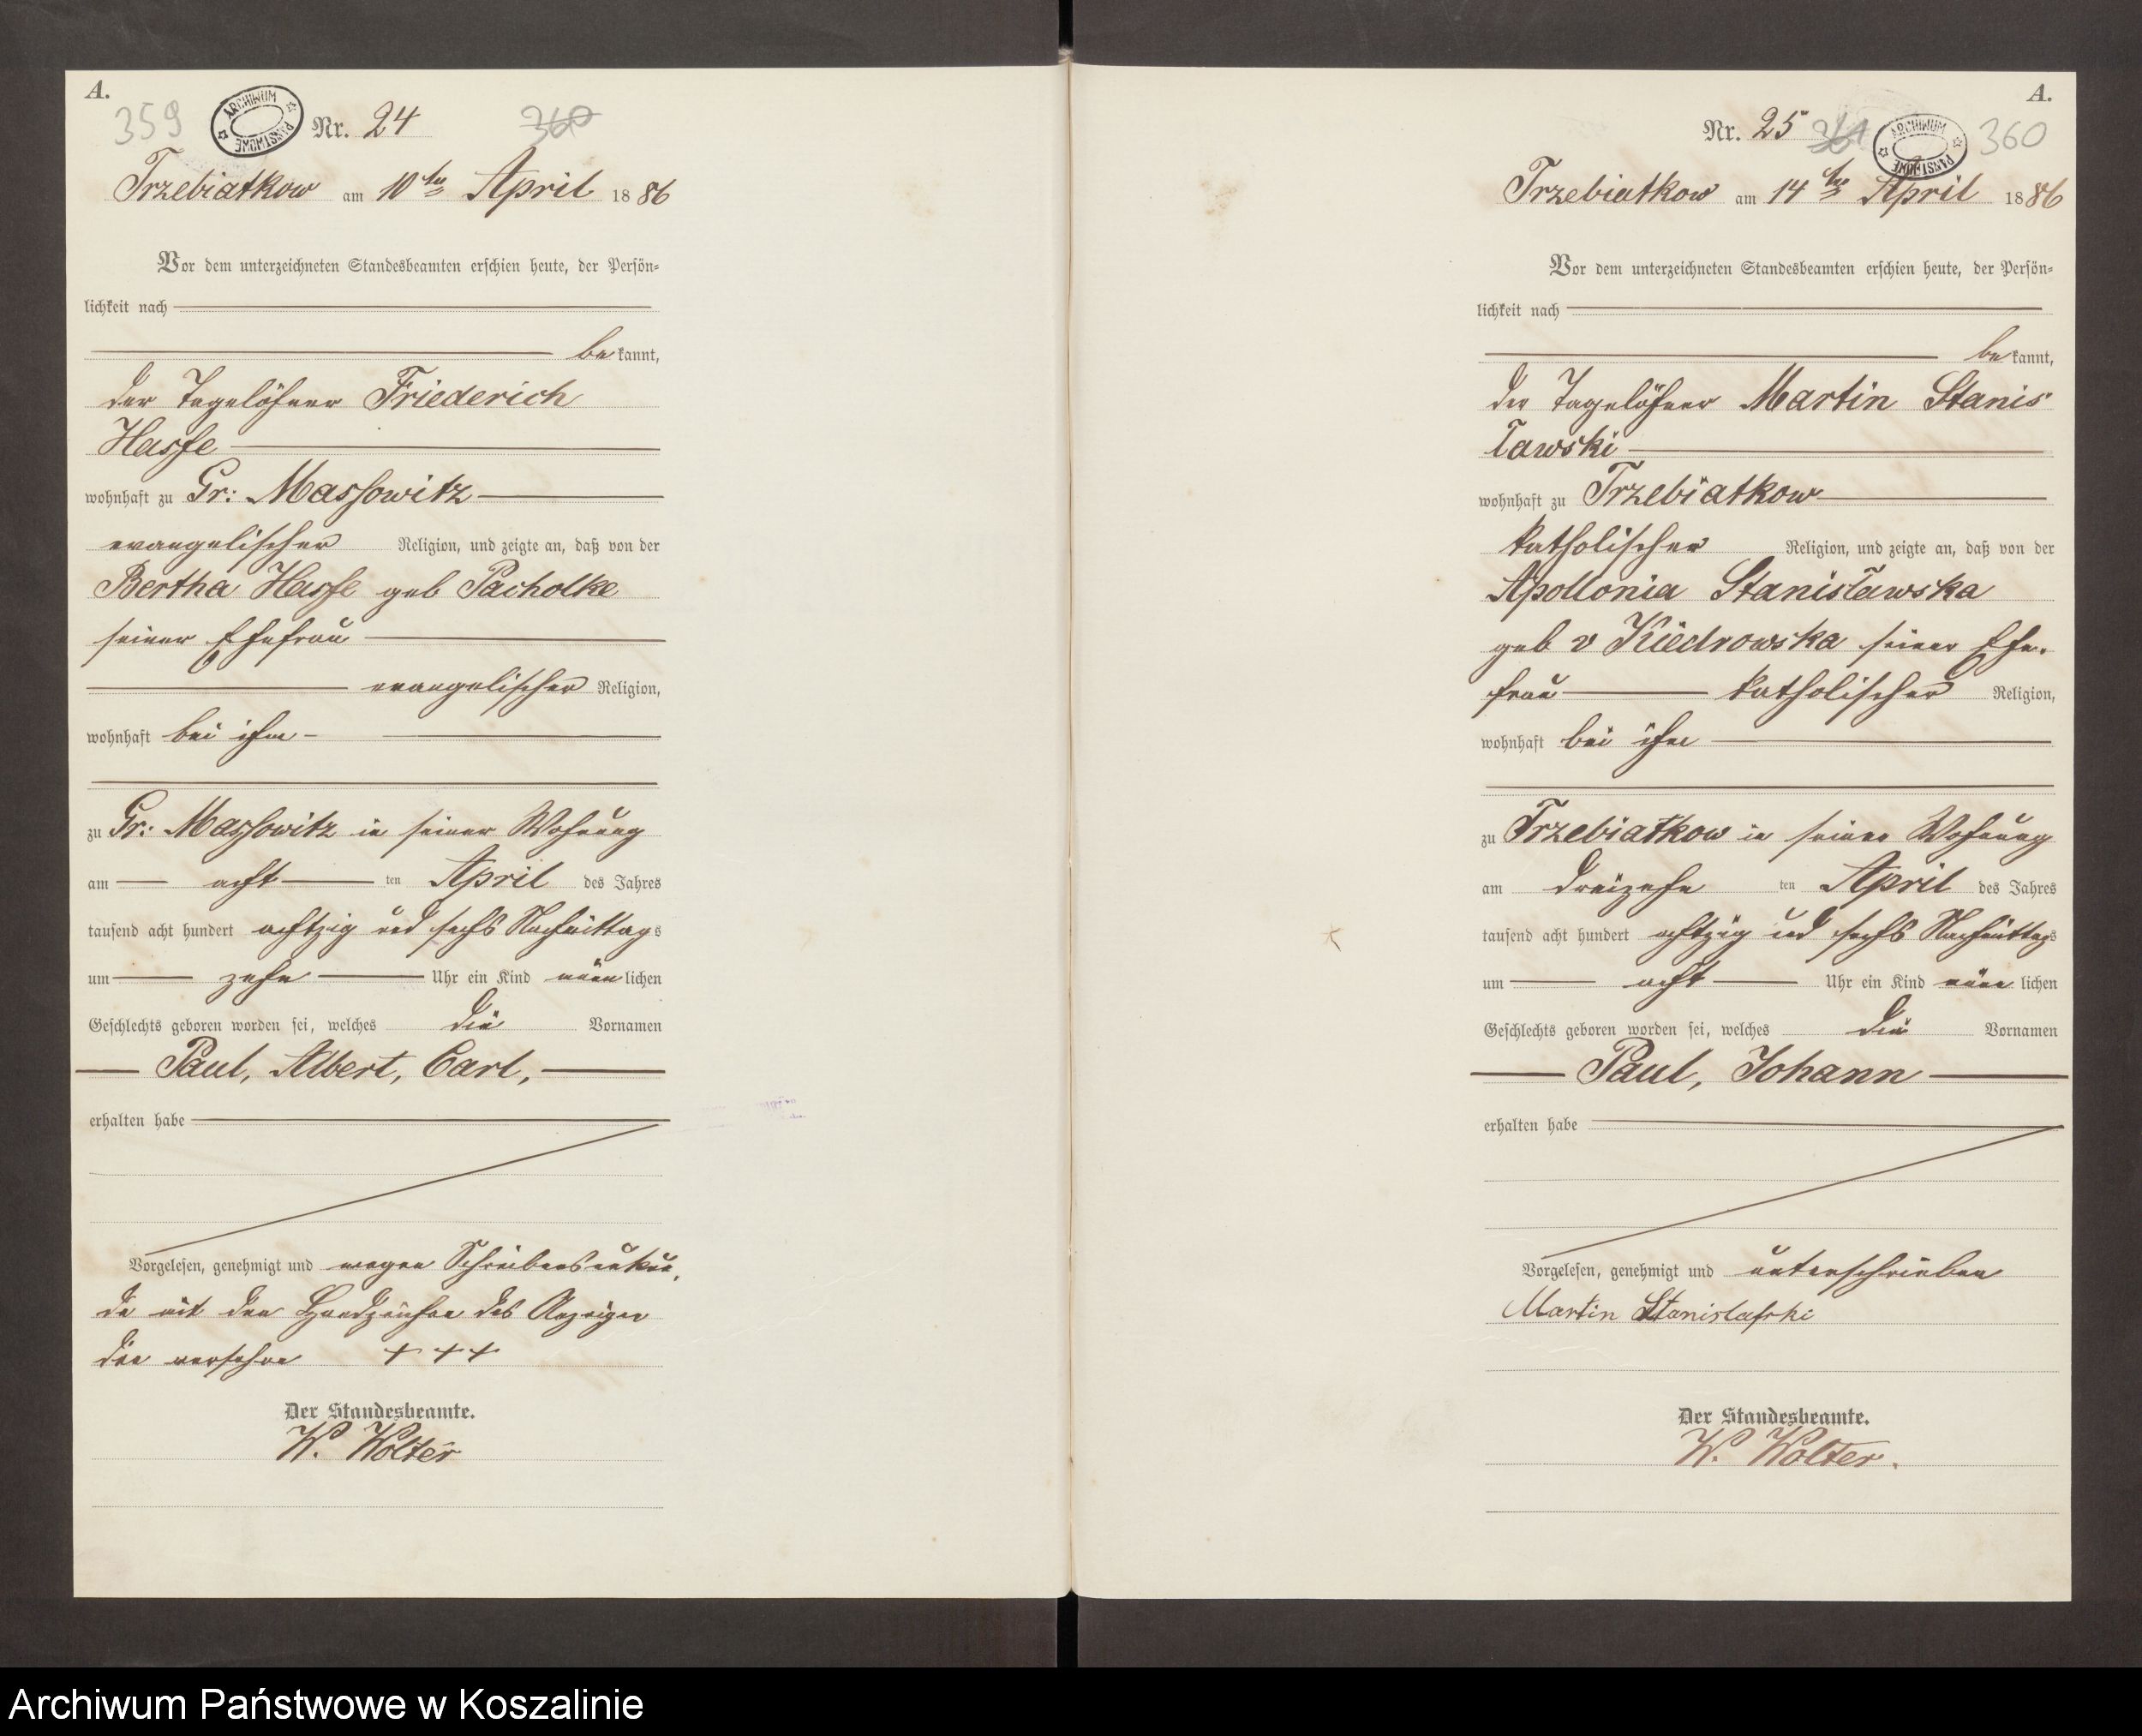 A.
359
ARCHIWUM PAŃSTWOWE
Nr. 24
360
Trzebiatkow am 10ten April 1886
Vor dem unterzeichneten Standesbeamten erschien heute, der Persön-
lichkeit nach
bekannt,
der Tagelöhner Friederich
Hasse
wohnhaft zu Gr: Massowitz
evangelischer Religion, und zeigte an, daß von der
Bertha Hasse geb Pacholke
seiner Ehefrau
evangelischer Religion,
wohnhaft bei ihm
zu Gr: Massowitz in seiner Wohnung
am acht ten April des Jahres
tausend acht hundert achtzig und sechs Nachmittags
um zehn Uhr ein Kind männlichen
Geschlechts geboren worden sei, welches die Vornamen
Paul, Albert, Carl,
erhalten habe
Vorgelesen, genehmigt und wegen Schreibensunkun
de mit den Handzeichen des Anzeigen
den versehen + + +
Der Standesbeamte.
W. Wolter
A.
Nr. 25
361
ARCHIWUM PAŃSTWOWE
360
Trzebiatkow am 14ten April 1886
Vor dem unterzeichneten Standesbeamten erschien heute, der Persön-
lichkeit nach
bekannt,
der Tagelöhner Martin Stanis
lawski
wohnhaft zu Trzebiatkow
katholischer Religion, und zeigte an, daß von der
Apollonia Stanislawska
geb v Kiedrowska seiner Ehe-
frau katholischer Religion,
wohnhaft bei ihm
zu Trzebiatkow in seiner Wohnung
am dreizehn ten April des Jahres
tausend acht hundert achtzig und sechs Nachmittags
um acht Uhr ein Kind männlichen
Geschlechts geboren worden sei, welches die Vornamen
Paul, Johann
erhalten habe
Vorgelesen, genehmigt und unterschrieben
Martin Stanislafski
Der Standesbeamte.
W. Wolter.
Archiwum Państwowe w Koszalinie